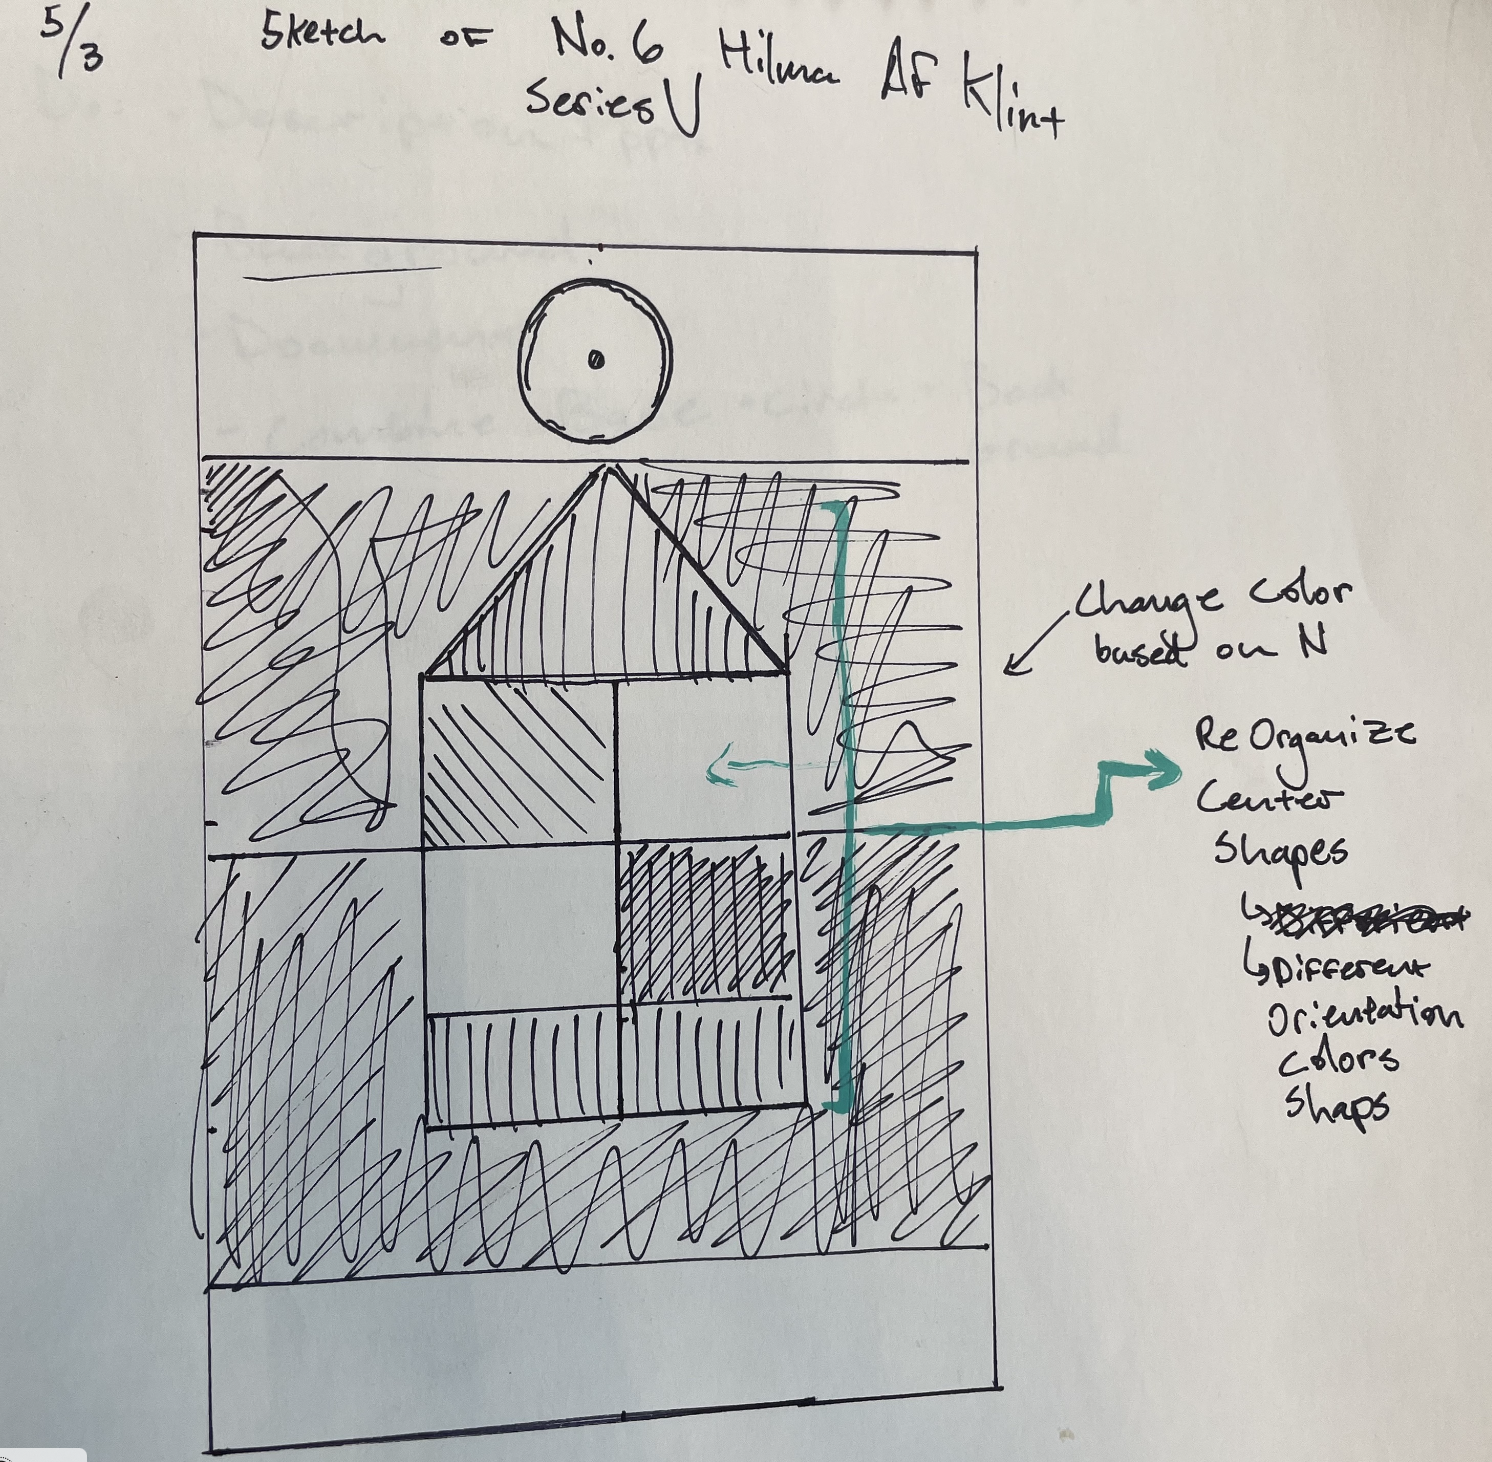 5/3
Sketch of No. 6 Hilma AF Klint
Series V
Change color
based on N
ReOrganize
Center
Shapes
↳Different
Orientation
Colors
Shaps